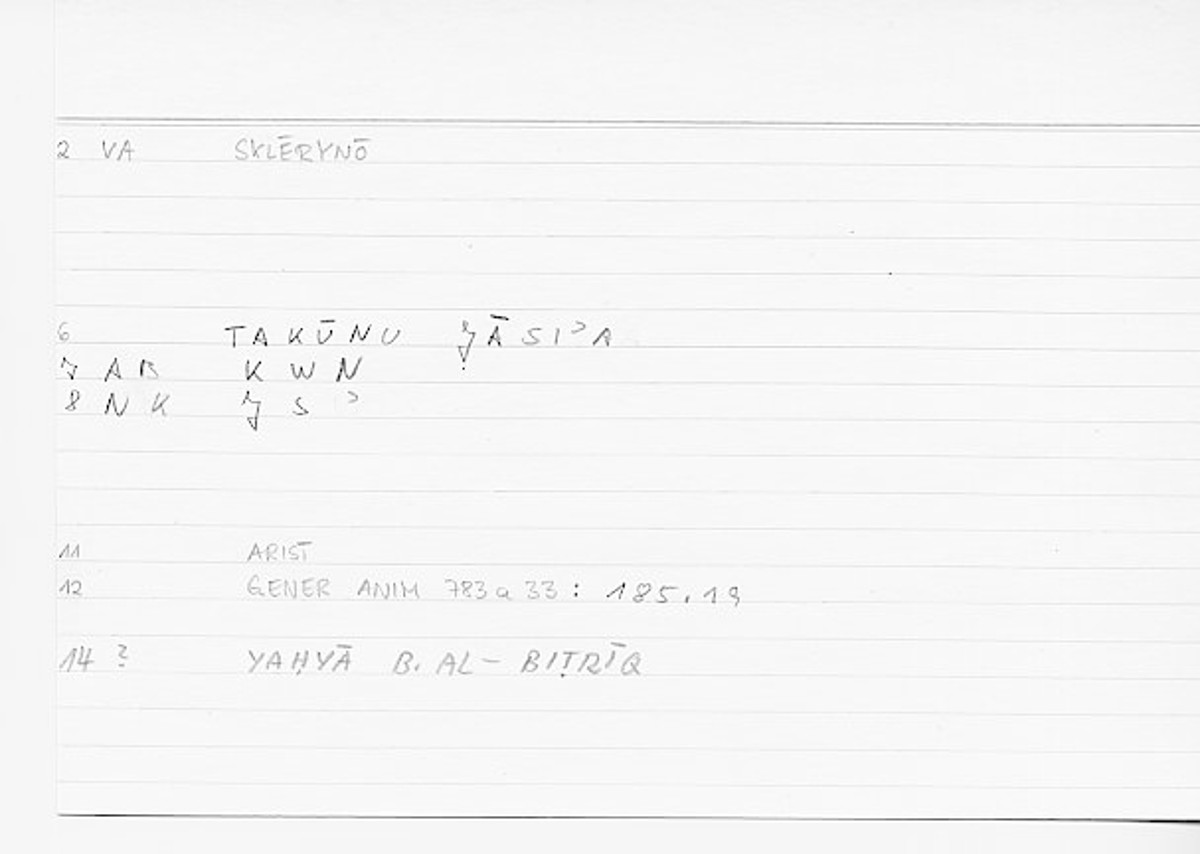 2 VA SKLĒRYNŌ
6 TAKŪNU JĀSIʾA
7 AB K W N
8 NK J S ʾ
11 ARIST
12 GENER ANIM 783 a 33 : 185.19
14 ? YAḤYĀ B. AL-BIṬRĪQ